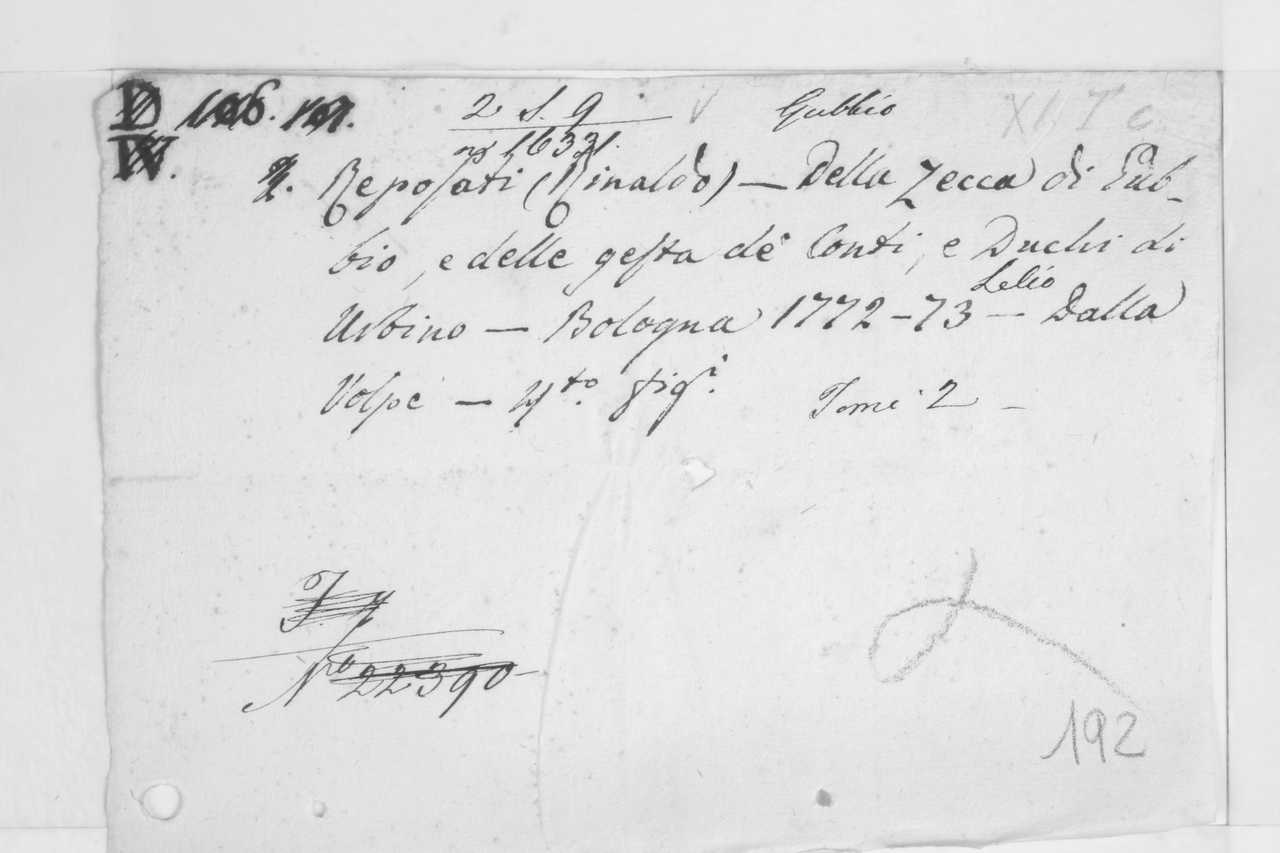 D 106. 107. 2 S. 9 Gubbio
W. nº 1633.
Reposati (Rinaldo) — Della Zecca di Gub-
bio, e delle gesta de' Conti, e Duchi di
Lelio
Urbino — Bologna 1772-73 — Dalla
Volpe — 4to. figi. Tomi 2 —
Nro 22390
192